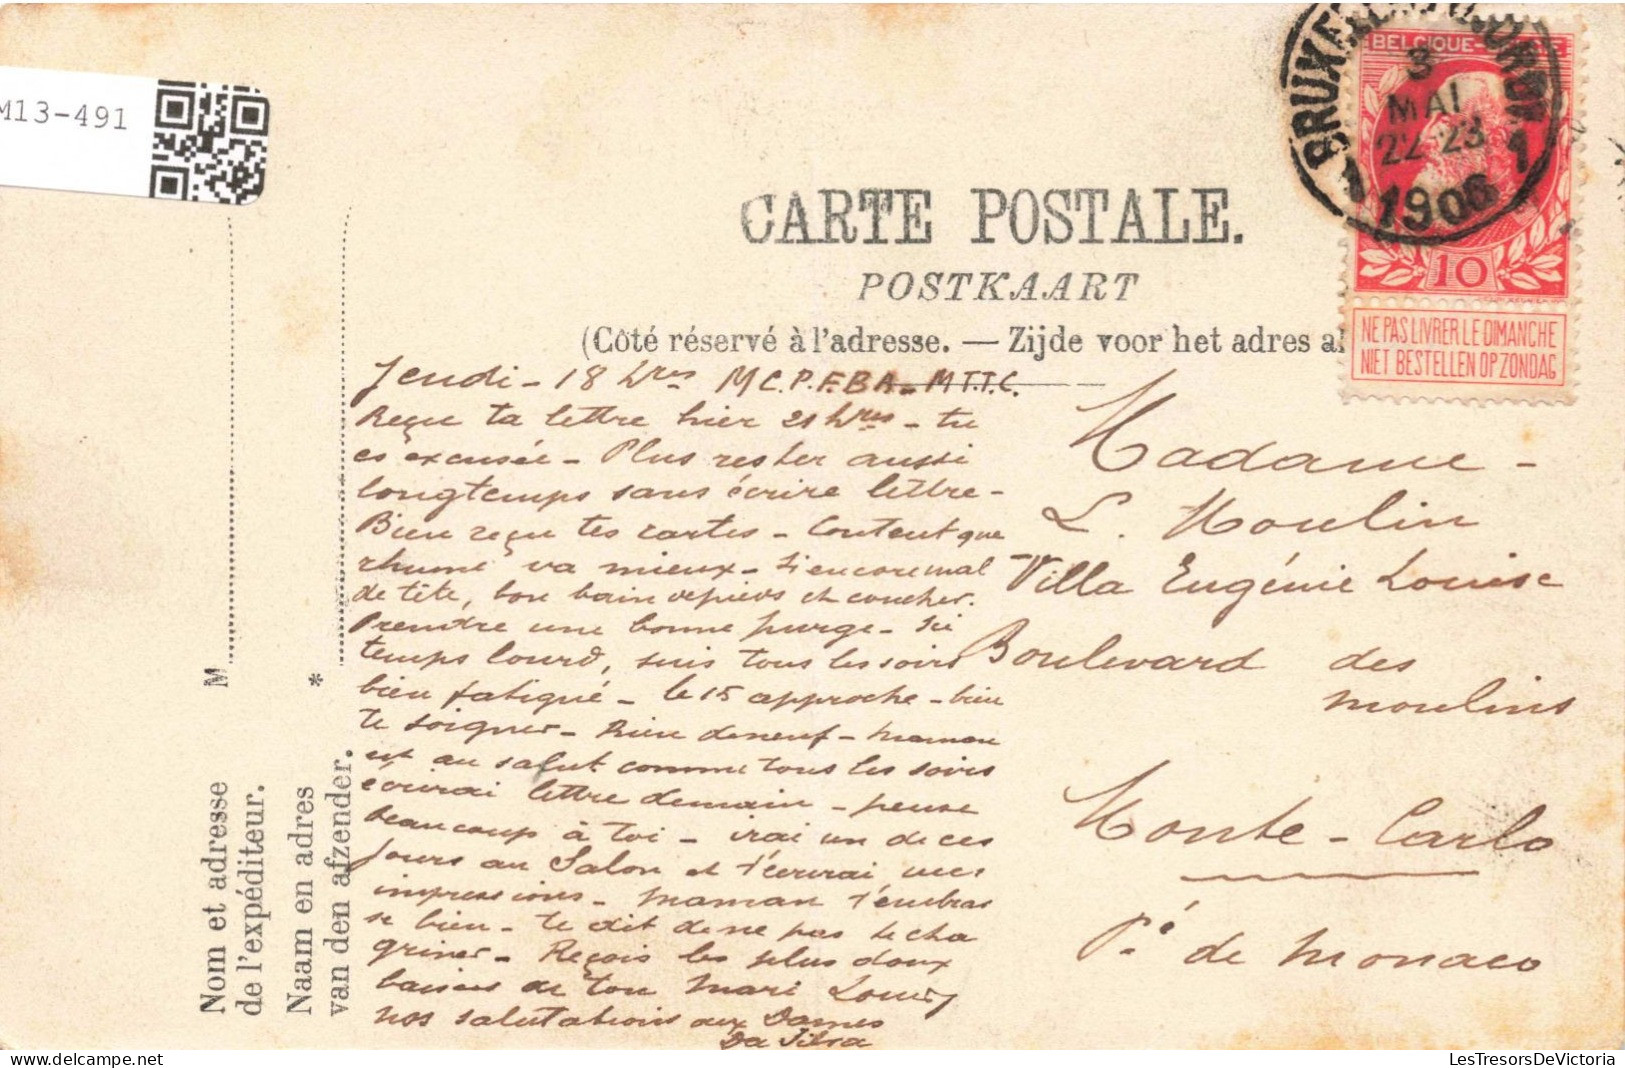 M13-491
BELGIQUE
BRUXELLES
3
MAI
22-23
1 1906 1
10
NE PAS LIVRER LE DIMANCHE
NIET BESTELLEN OP ZONDAG
CARTE POSTALE.
POSTKAART
(Côté réservé à l'adresse. — Zijde voor het adres al
Jeudi - 18 hres M C.P.F.B A - M T.T.C.
Reçu ta lettre hier 21 hres - tu
es excusée - Plus rester aussi
longtemps sans écrire lettre -
Bien reçu tes cartes - Content que
rhume va mieux - si encore mal
de tête, bon bain de pieds et coucher.
Prendre une bonne purge - Ici
temps lourd, suis tous les soirs
bien fatigué - le 15 approche - bien
te soigner - Rien de neuf - maman
est au salut comme tous les soirs
écrirai lettre demain - pense
beaucoup à toi - irai un de ces
jours au Salon et t'écrirai mes
impressions - maman t'embras
se bien - te dit de ne pas te cha
griner - Reçois les plus doux
baisers de ton mari Louis
nos salutations aux Dames
Da Silva
Madame -
L. Moulin
Villa Eugénie Louise
Boulevard des
moulins
Monte - Carlo
Pé de Monaco
M
*
Nom et adresse
de l'expéditeur.
Naam en adres
van den afzender.
LesTresorsDeVictoria